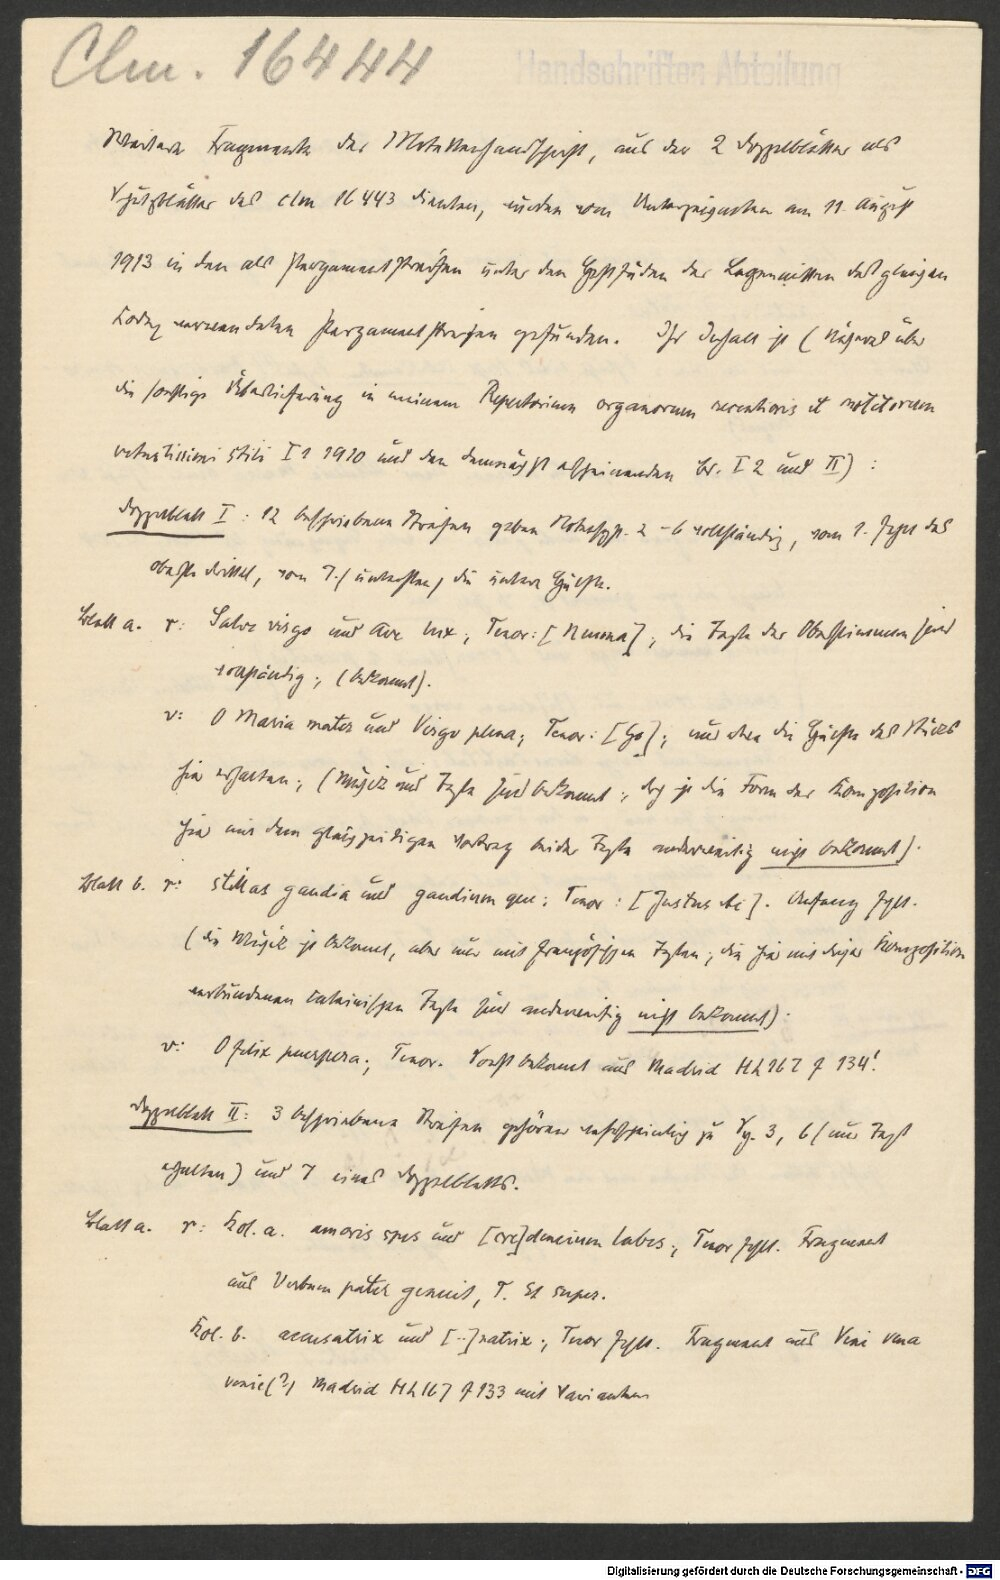 Clm. 16444
Handschriften Abteilung
Weitere Fragmente der Motettenhandschrift, aus der 2 Doppelblätter als
Schutzblätter des clm 16443 dienten, wurden vom Unterzeigneten am 11. August
1913 in den als Pergamentstreifen unter den Heftfäden der Lagenmitten des gleichen
Kodex verwendeten Pergamentstreifen gefunden. Ihr Inhalt ist (Näheres über
die sonstige Überlieferung in meinem Repertorium organorum recentioris et motetorum
vetustissimi stili I 1 1910 und den demnächst erscheinenden Bd. I 2 und II) :
Doppelblatt I : 12 beschriebene Streifen geben Notensyst. 2 - 6 vollständig, vom 1. System das
oberste Drittel, vom 7. (untersten) die untere Hälfte.
Blatt a. r : Salve virgo und Ave lux ; Tenor : [Neuma] ; die Texte der Oberstimmen sind
vollständig ; (bekannt).
v : O Maria mater und Virgo plena ; Tenor : [Go] ; nur etwa die Hälfte des Stückes
hier erhalten ; (Musik und Texte sind bekannt ; doch ist die Form der Komposition
hier mit dem gleichzeitigen Vortrag beider Texte anderweitig nicht bekannt).
Blatt b. r : stillas gaudia und gaudium que ; Tenor : [Justus ]. Anfang fehlt.
(die Musik ist bekannt, aber nur mit französischen Texten ; die hier mit dieser Komposition
verbundenen lateinischen Texte sind anderweitig nicht bekannt).
v : O felix puerpera ; Tenor. Sonst bekannt aus Madrid Hh 167 f 134'.
Doppelblatt II : 3 beschriebene Streifen gehören wahrscheinlich zu Sy. 3, 6 (nur Text
erhalten) und 7 eines Doppelblatts.
Blatt a. r : Kol. a. amoris spes und [cre]dencium labes ; Tenor fehlt. Fragment
aus Verbum pater genuit, T. Et super.
Kol. b. accusatrix und [..]natrix ; Tenor fehlt. Fragment aus Veni vena
venie(?) Madrid Hh 167 f 133 mit Varianten
Digitalisierung gefördert durch die Deutsche Forschungsgemeinschaft - DFG